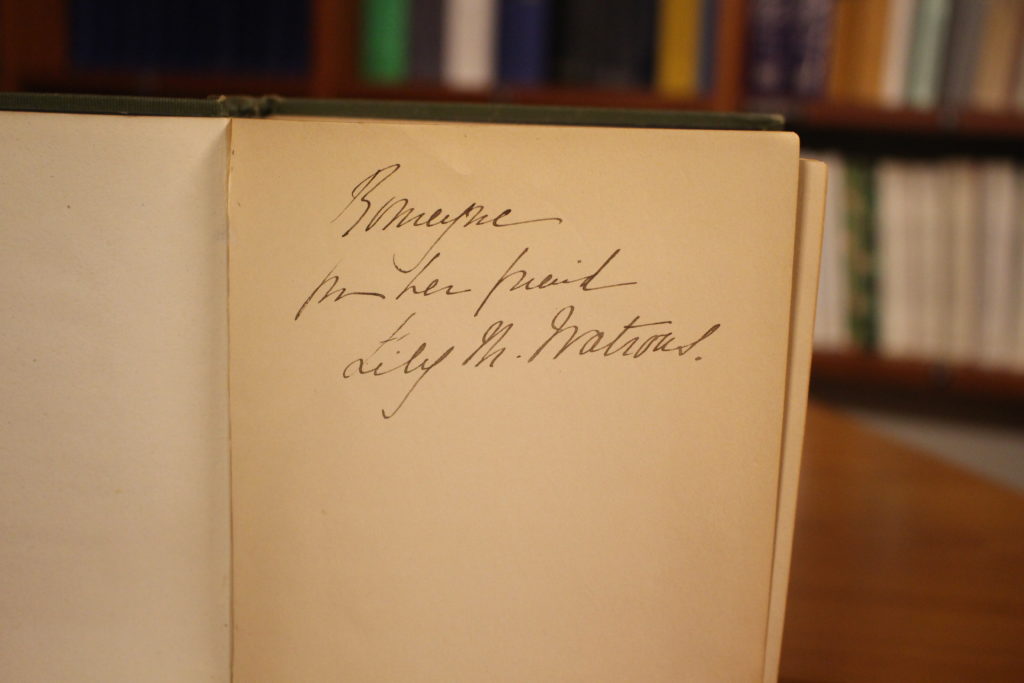 Romeyne
from her friend
Lily M. Watrous.